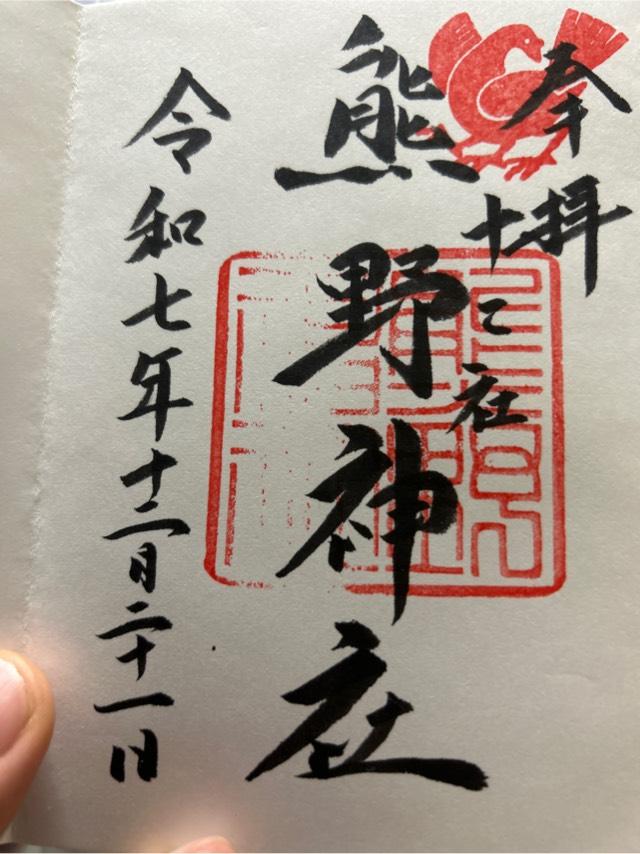 奉拝
十二社
熊野神社
令和七年十二月二十一日